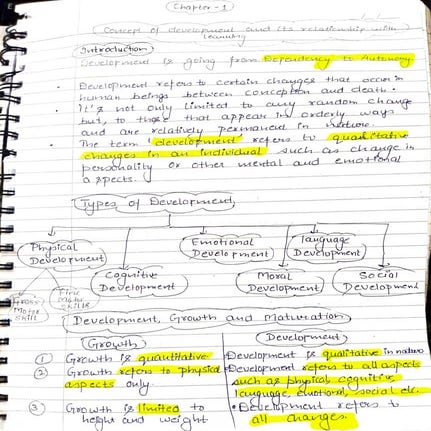 Chapter-1
Concept of development and its relationship with
learning
Introduction
Development is going from Dependency to Autonomy
Development refers to certain changes that occur in
human beings between conception and death.
It's not only limited to any random change
but, to those that appear in orderly ways
and are relatively permanent in nature.
The term 'development' refers to qualitative
changes in an individual such as change in
personality or other mental and emotional
aspects.
Types of Development
Physical Development
Emotional Development
Language Development
Cognitive Development
Moral Development
Social Development
Gross Motor Skill
Fine Motor Skills
Development, Growth and Maturation
Growth
Development
① Growth is quantitative
Development is qualitative in nature
② Growth refers to physical
aspects only.
Development refers to all aspects
such as physical, cognitive,
language, emotional, social etc.
③ Growth is limited to
height and weight
• Development refers to
all changes.